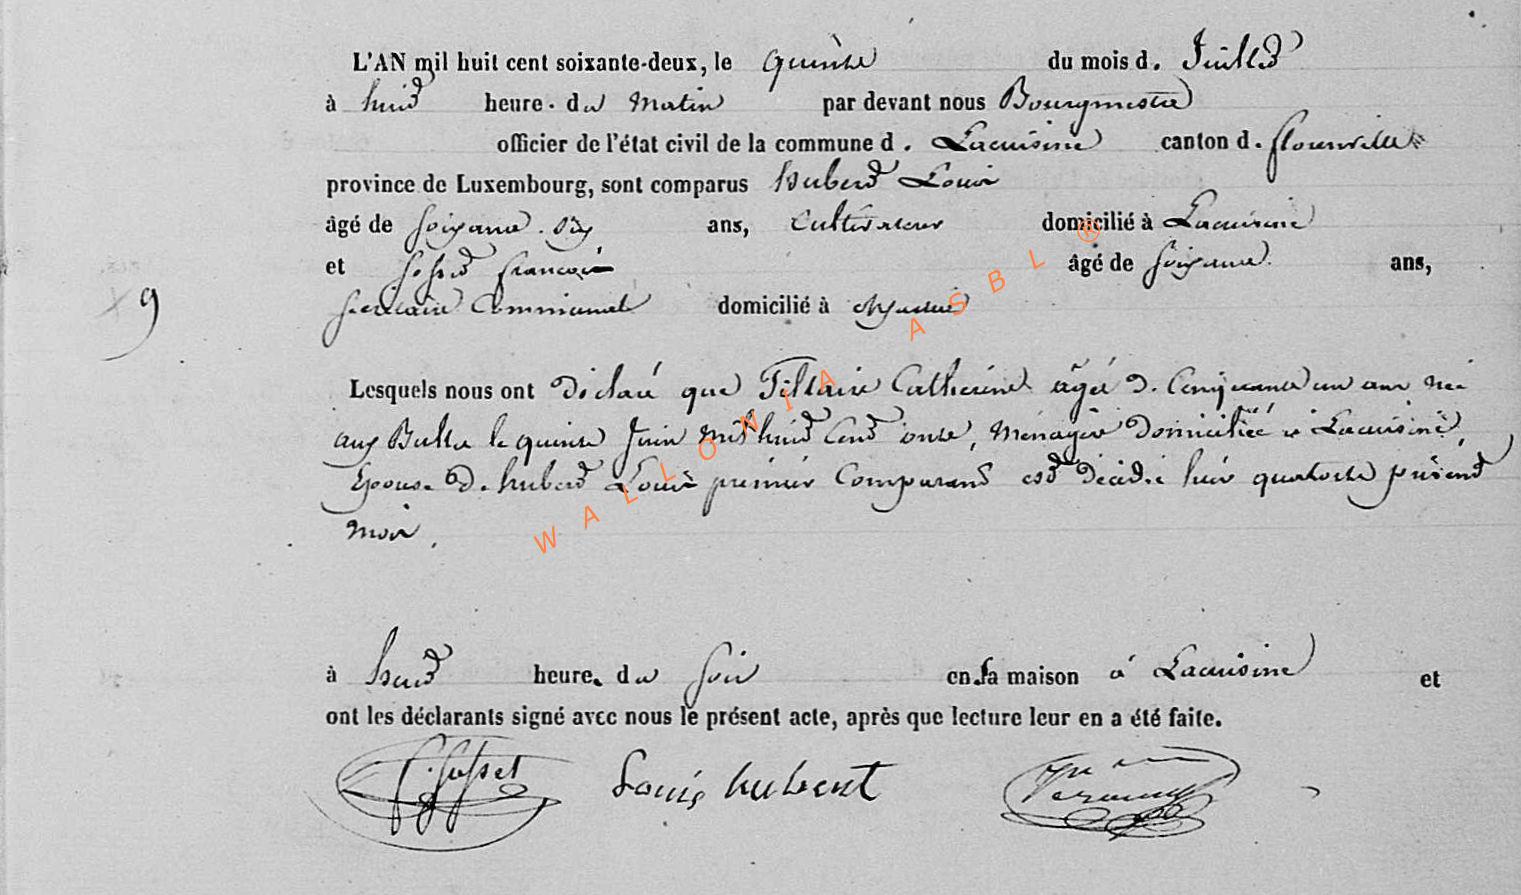 L'AN mil huit cent soixante-deux, le quinze du mois d. Juillet
à huit heure. du Matin par devant nous Bourgmestre
officier de l'état civil de la commune d. Lacuisine canton d. florenville
province de Luxembourg, sont comparus hubert Louis
âgé de soixante. six ans, Cultivateur domicilié à Lacuisine
et françois âgé de soixante ans,
9
secrétaire Communal domicilié à
Lesquels nous ont déclaré que Tillaire Catherine âgée d. Cinquante un ans née
aux Bulles le quinze Juin mil huit Cent onze, Ménagère Domiciliée à Lacuisine,
Epouse d. hubert Louis premier Comparant est décédée hier quatorze présent
mois.
à huit heure. du soir en sa maison à Lacuisine et
ont les déclarants signé avec nous le présent acte, après que lecture leur en a été faite.
Louis hubert
WALLONIA ASBL ®